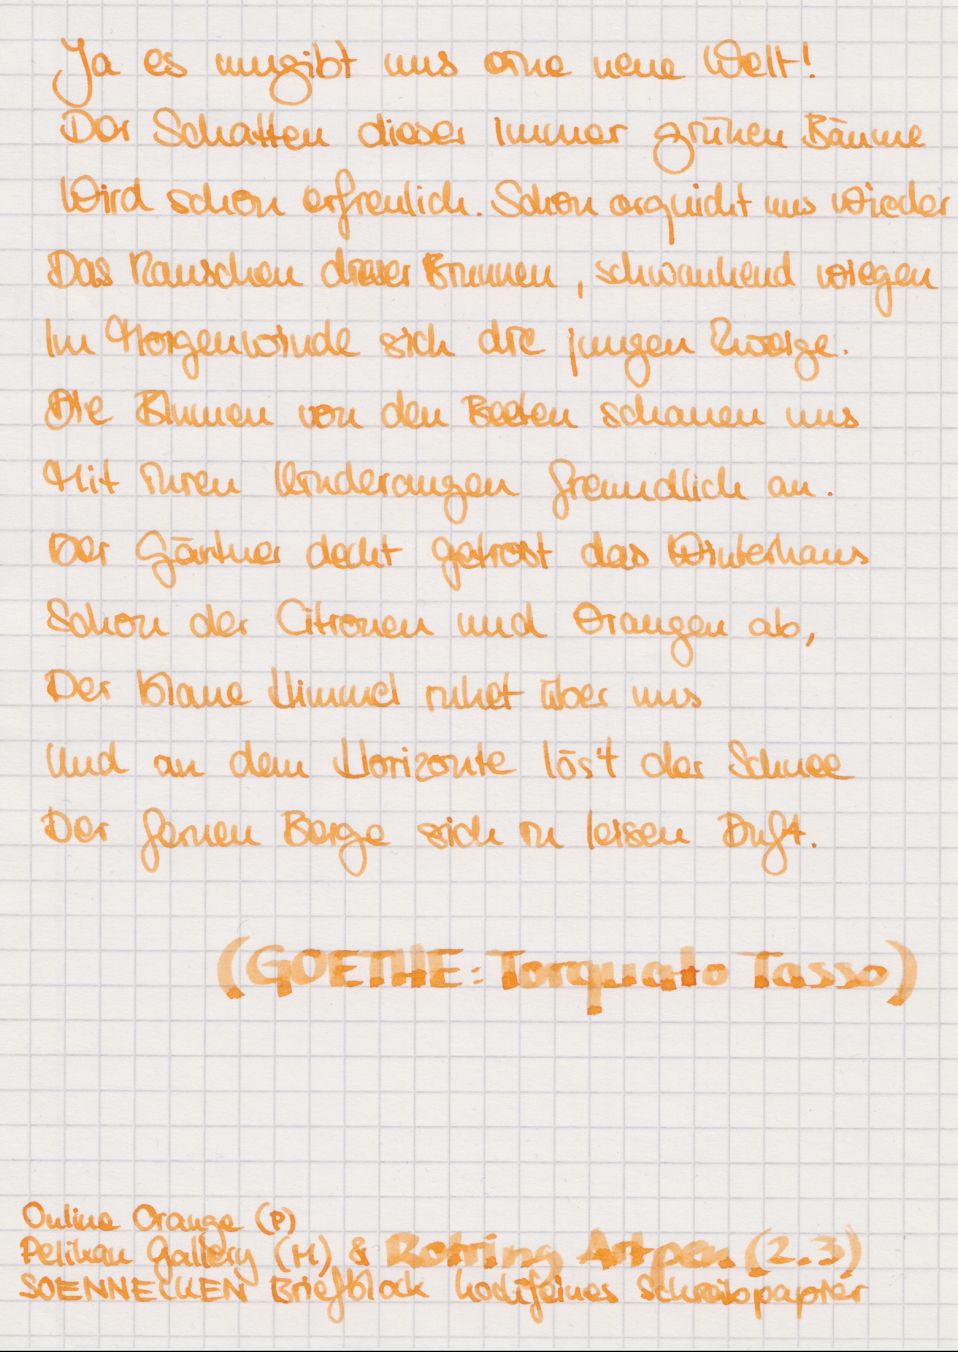 Ja es umgibt uns eine neue Welt!
Der Schatten dieser immer grünen Bäume
Wird schon erfreulich. Schon erquickt uns wieder
Das Rauschen dieser Brunnen, schwankend wiegen
Im Morgenwinde sich die jungen Zweige.
Die Blumen von den Beeten schauen uns
Mit ihren Kinderaugen freundlich an.
Der Gärtner deckt getrost das Winterhaus
Schon der Citronen und Orangen ab,
Der blaue Himmel ruhet über uns
Und an dem Horizonte löst der Schnee
Der fernen Berge sich in leisen Duft.
(GOETHE: Torquato Tasso)
Online Orange (P)
Pelikan Gallery (M) & Rotring Artpen (2.3)
SOENNECKEN Briefblock hochfeines Schreibpapier